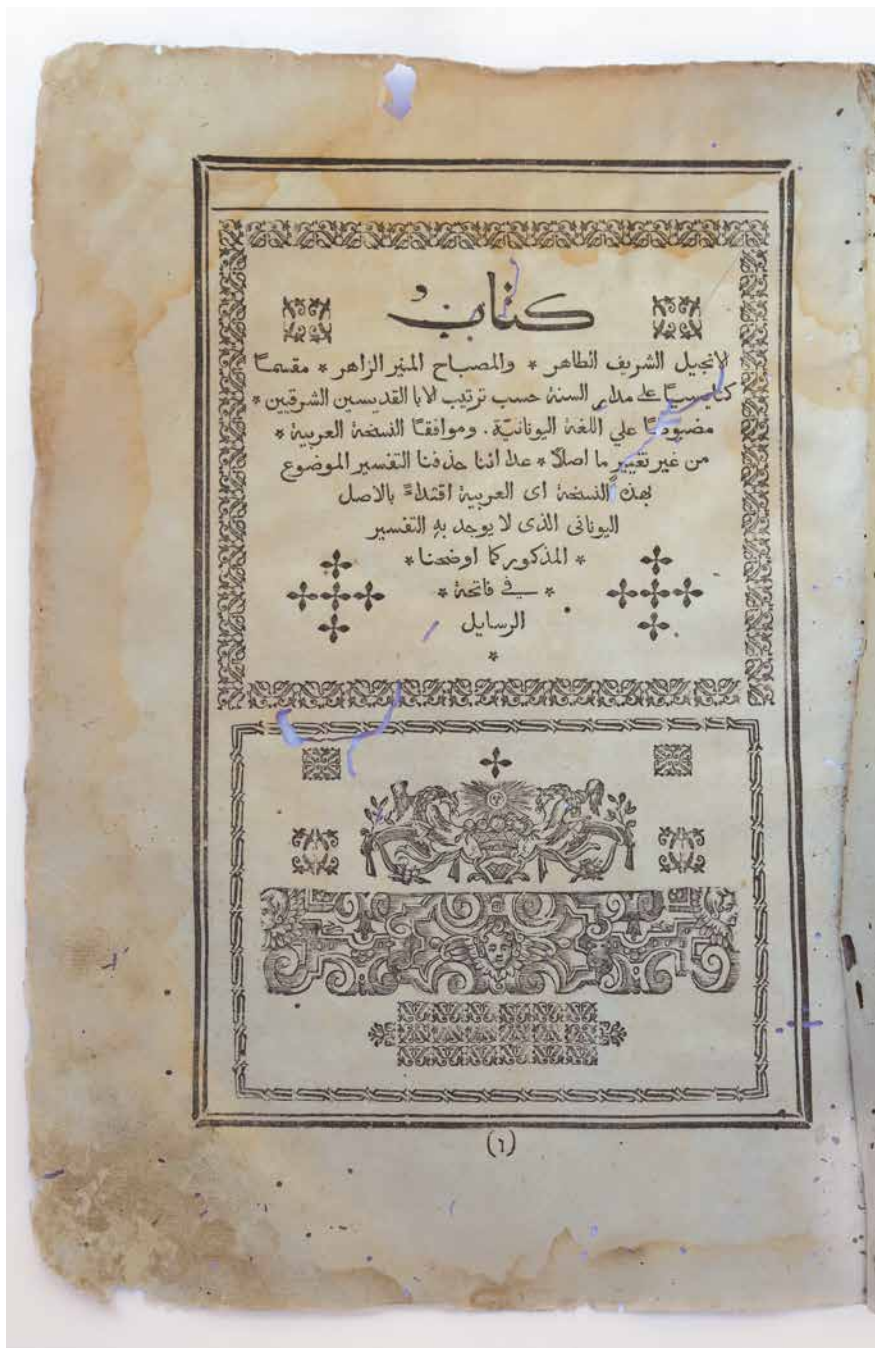 كتاب
الانجيل الشريف الطاهر * والمصباح المنير الزاهر * مقسمـاً
كنايسيـاً على مدار السنة حسب ترتيب الابا القديسين الشرقيين *
مضبوطـاً علي اللغة اليونانيّة. وموافقـاً النسخة العربية *
من غير تغيير ما اصلاً * عدا اننا حذفنا التفسير الموضوع
بهذه النسخة اى العربية اقتداءً بالاصل
اليونانى الذى لا يوجد بهِ التفسير
* المذكور كما اوضحنا *
* في فاتحة *
الرسايل
*
(١)